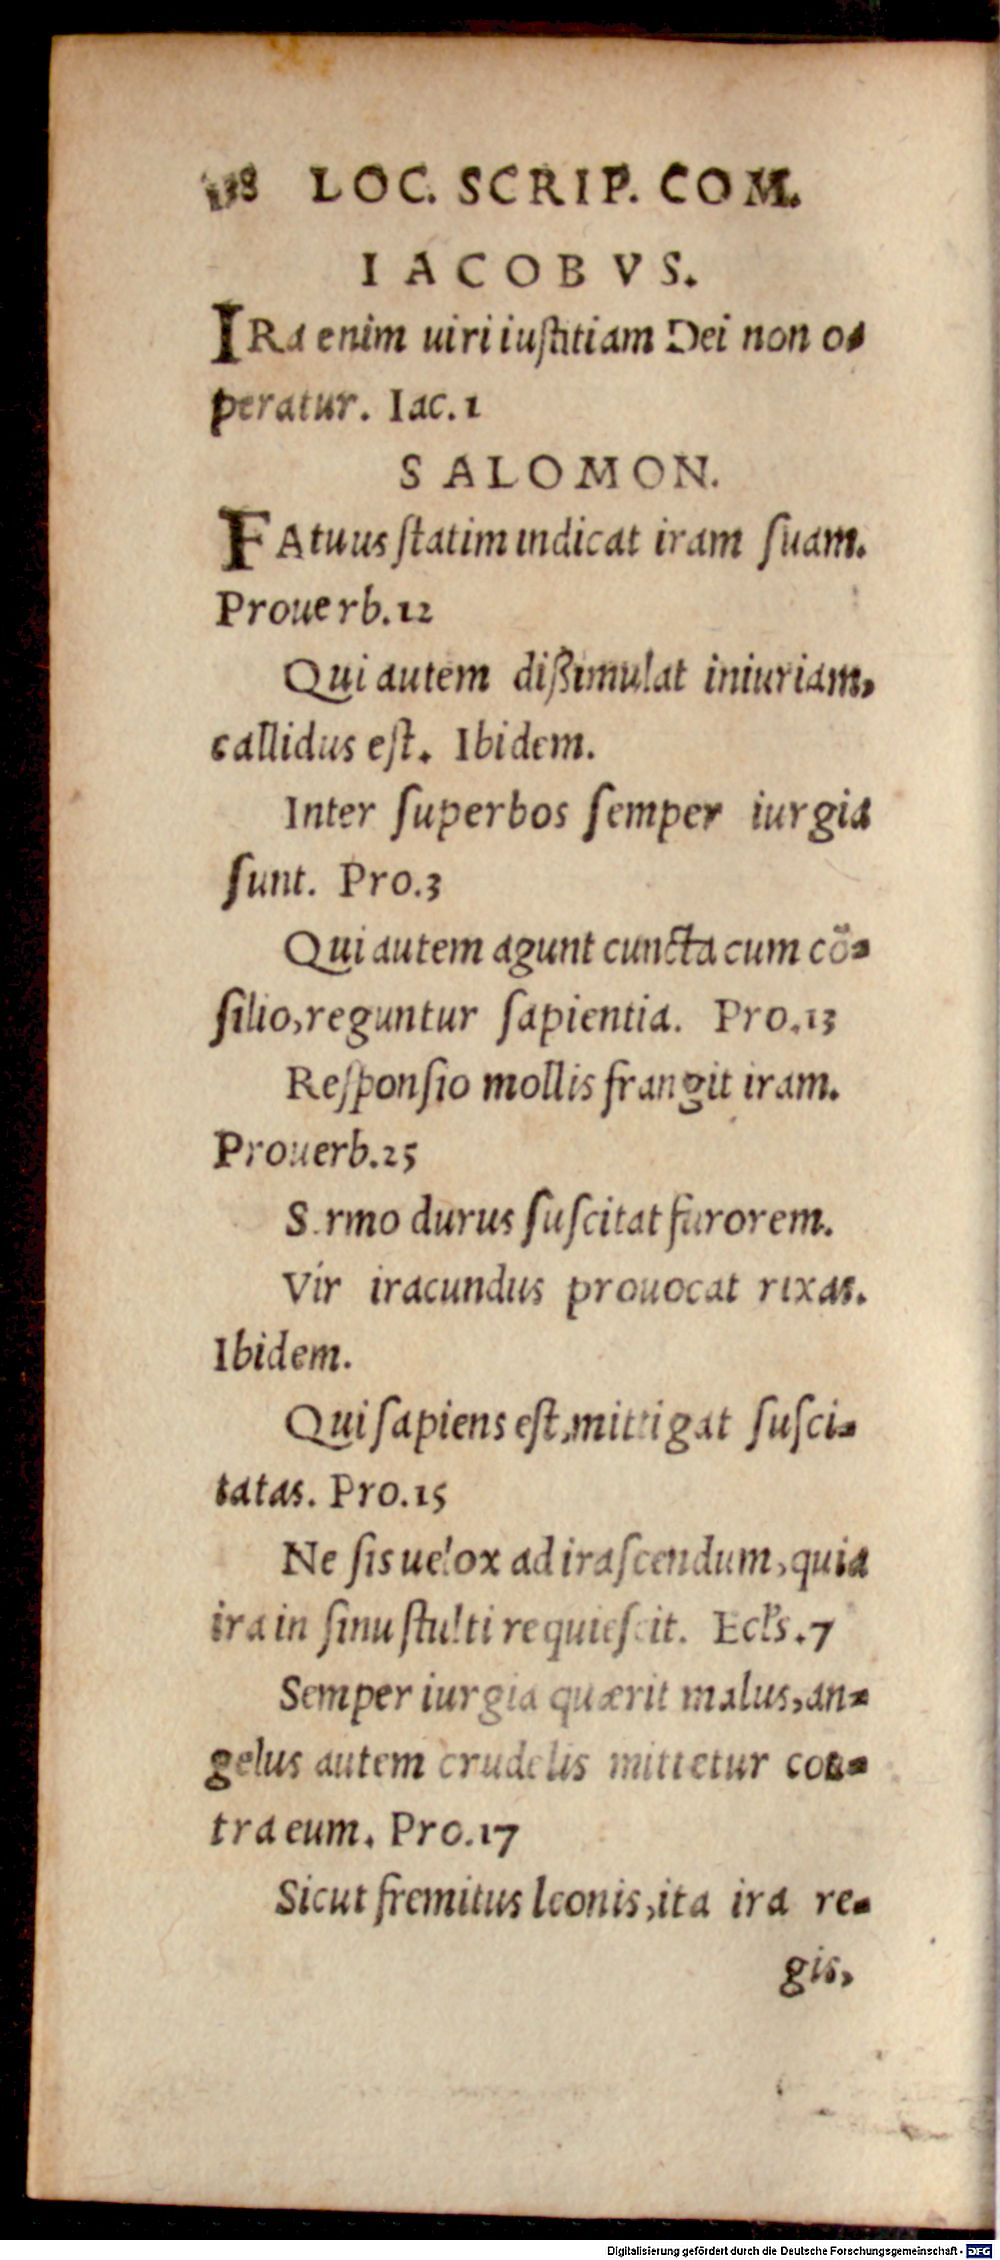 LOC. SCRIP. COM.
IACOBVS.
IRa enim uiri iuſtitiam Dei non o-
peratur. Iac. 1
SALOMON.
FAtuus ſtatim indicat iram ſuam.
Prouerb. 12
Qui autem diſſimulat iniuriam,
callidus eſt. Ibidem.
Inter ſuperbos ſemper iurgia
ſunt. Pro. 3
Qui autem agunt cuncta cum cõ-
ſilio, reguntur ſapientia. Pro. 13
Reſponſio mollis frangit iram.
Prouerb. 25
S rmo durus ſuſcitat furorem.
Vir iracundus prouocat rixas.
Ibidem.
Qui ſapiens eſt, mittigat ſuſci-
tatas. Pro. 15
Ne ſis uelox ad iraſcendum, quia
ira in ſinu ſtulti requieſcit. Ecl's. 7
Semper iurgia quærit malus, an-
gelus autem crudelis mittetur con-
tra eum. Pro. 17
Sicut fremitus leonis, ita ira re-
gis,
Digitalisierung gefördert durch die Deutsche Forschungsgemeinschaft - DFG